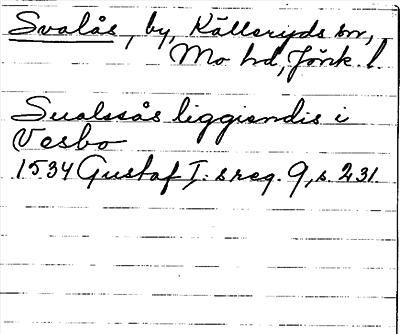 Svalås, by, Källeryds sn,
Mo hd, Jönk. l.
Sualsås liggiendis i
Vesbo
1534 Gustaf I:s reg. 9, s. 231